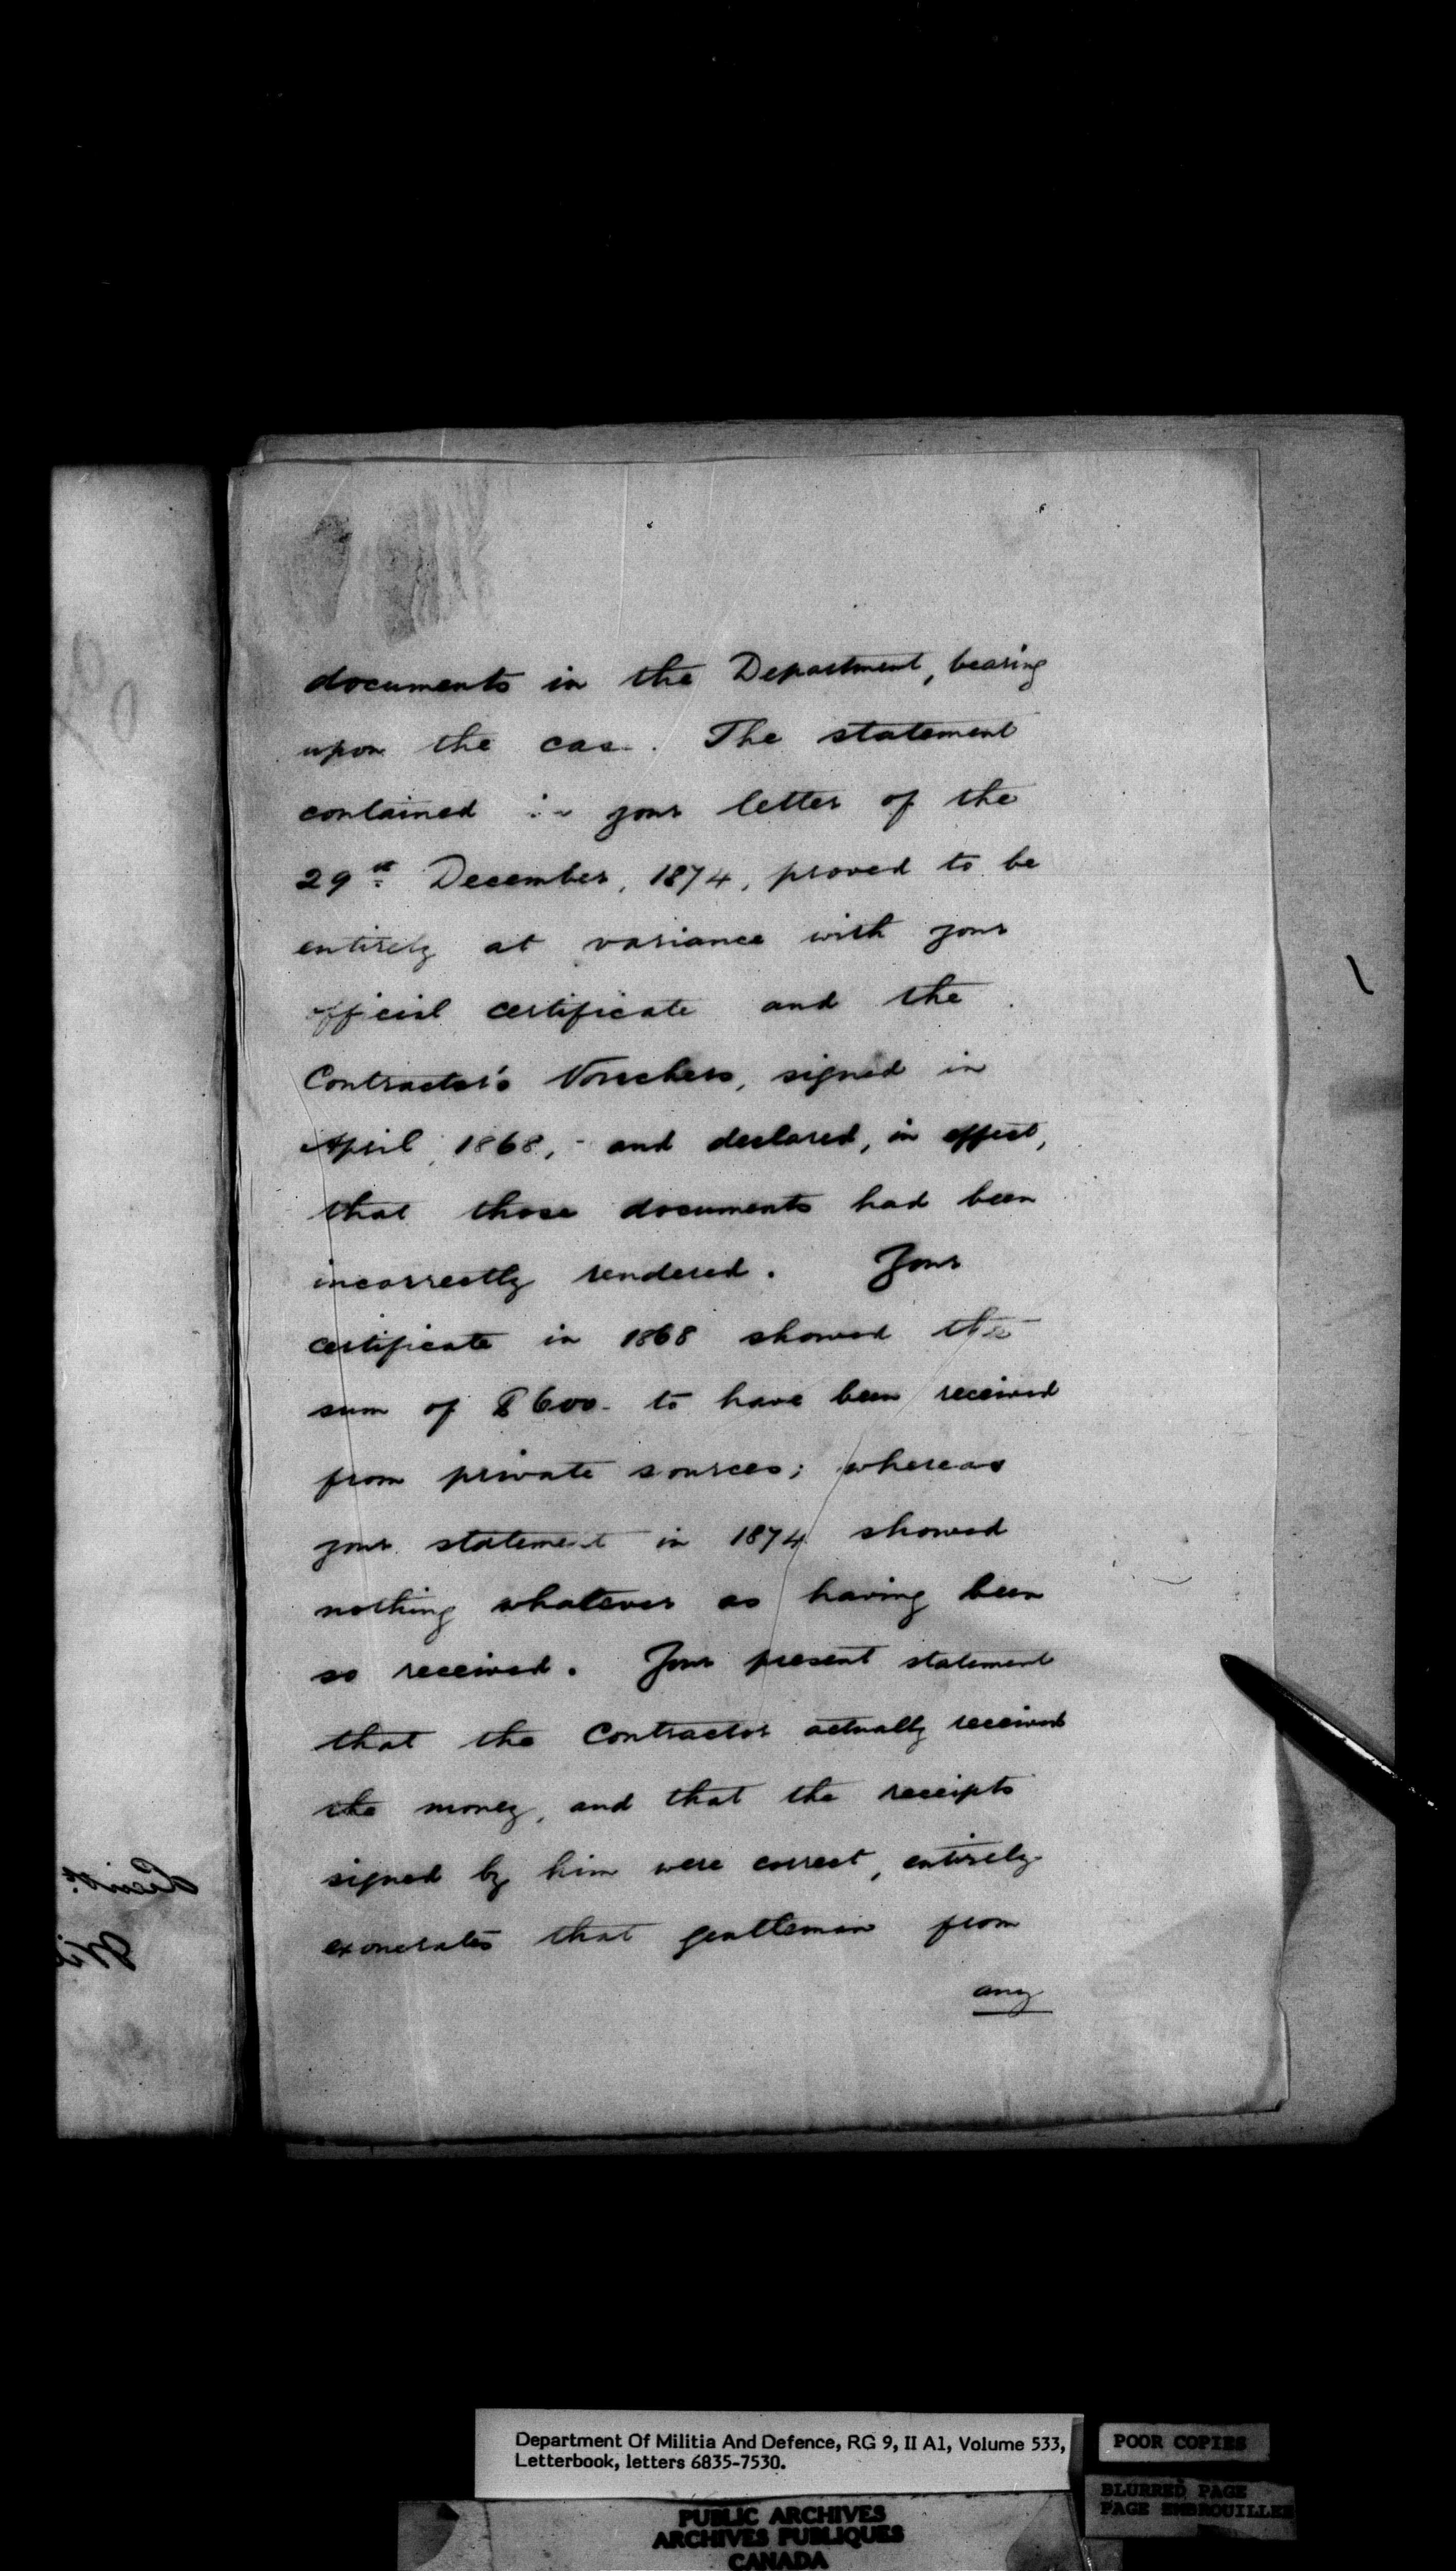 documents in the Department, bearing
upon the cas. The statement
contained in your letter of the
29th December, 1874, proved to be
entirely at variance with your
official certificate and the
Contractor's Vouchers, signed in
April, 1868, - and declared, in effect,
that those documents had been
incorrectly rendered. Your
certificate in 1868 showed the
sum of $600- to have been received
from private sources; whereas
your statement in 1874 showed
nothing whatever as having been
so received. Your present statement
that the Contractor actually received
the money, and that the receipts
signed by him were correct, entirely
exonerates that gentleman from
any
Department Of Militia And Defence, RG 9, II A1, Volume 533,
Letterbook, letters 6835-7530.
POOR COPIES
BLURRED PAGE
PAGE EMBROUILLEE
PUBLIC ARCHIVES
ARCHIVES PUBLIQUES
CANADA